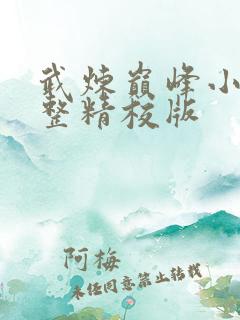 武炼巅峰小
整精校版
阿梅
未经同意禁止转载